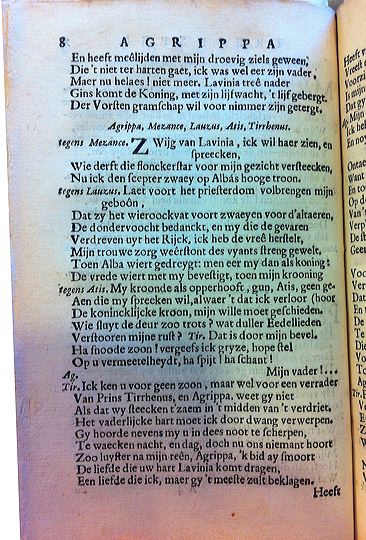 8 AGRIPPA
En heeft meêlijden met mijn droevig ziels geween,
Die 't niet ter harten gaet, ick was wel eer zijn vader,
Maer nu helaes! niet meer. Lavinia treê nader
Gins komt de Koning, met zijn lijfwacht, 't lijf gebergt.
Der Vorsten gramschap wil voor nimmer zijn getergt.
Agrippa, Mezance, Lauzus, Atis, Tirrhenus.
tegens Mezance. Zwijg van Lavinia, ick wil haer zien, en
spreecken,
Wie derft die flonckerstar voor mijn gezicht versteecken,
Nu ick den scepter zwaey op Albás hooge troon.
tegens Lauzus. Laet voort het priesterdom volbrengen mijn
geboôn,
Dat zy het wieroockvat voort zwaeyen voor d'altaeren,
De dondervoocht bedanckt, en my die de gevaren
Verdreven uyt het Rijck, ick heb de vreê herstelt,
Mijn trouwe zorg weêrstont des vyants streng gewelt.
Toen Alba wiert gedreygt: men eer my dan als koning:
De vrede wiert met my bevestigt, toen mijn krooning
tegens Atis. My kroonde als opperhooft, gun, Atis, geen ge-
Aen die my spreecken wil, alwaer't dat ick verloor (hoor
De konincklijcke kroon, mijn wille moet geschieden.
Wie sluyt de deur zoo trots? wat duller Eedellieden
Verstooren mijne rust? Tir. Dat is door mijn bevel.
Ha snoode zoon! vergeefs ick gryze, hope stel
Op u vermeetelheydt, ha spijt! ha schant!
Ag. Mijn vader!...
Tir. Ick ken u voor geen zoon, maer wel voor een verrader
Van Prins Tirrhenus, en Agrippa, weet gy niet
Als dat wy steecken t'zaem in 't midden van 't verdriet.
Het vaderlijcke hart moet ick door dwang verwerpen.
Gy hoorde nevens my u in dees noot te scherpen,
Te waecken nacht, en dag, doch nu ons niemant hoort
Zoo luyster na mijn reên, Agrippa, 'k bid ay smoort
De liefde die uw hart Lavinia komt dragen,
Een liefde die ick, maer gy 't meeste zult beklagen.
Heeft